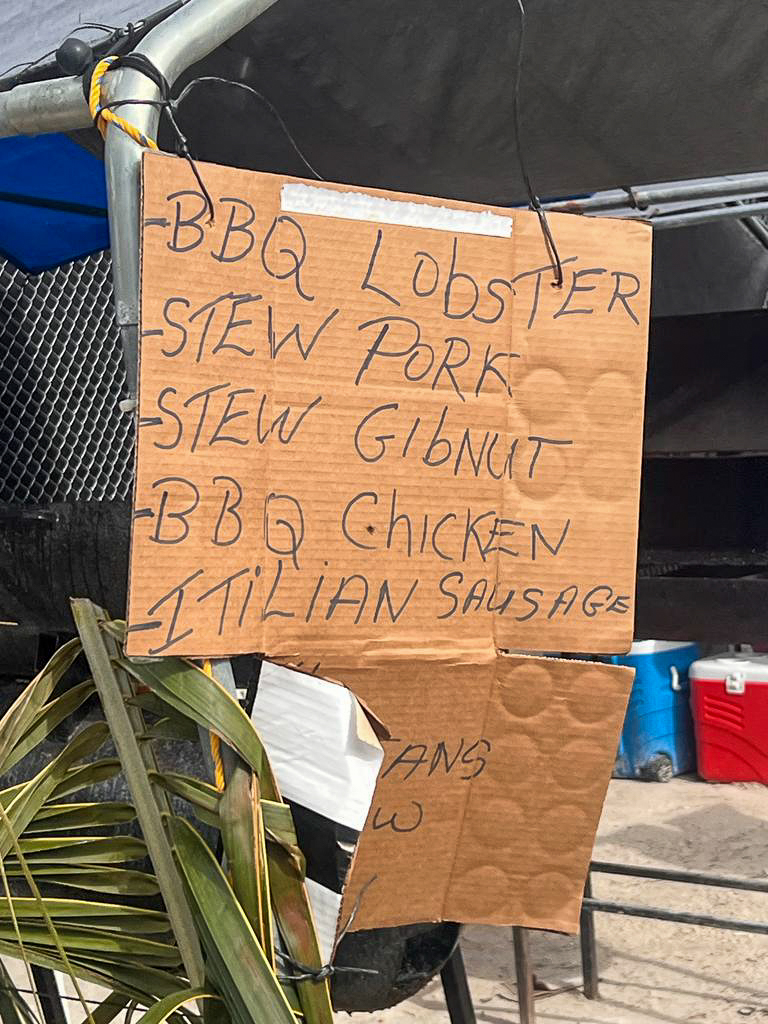 -BBQ LobsTER
-STEW PORK
-STEW GIbNUT
-BBQ ChICKEN
-ITiLiAN SAUSAGE